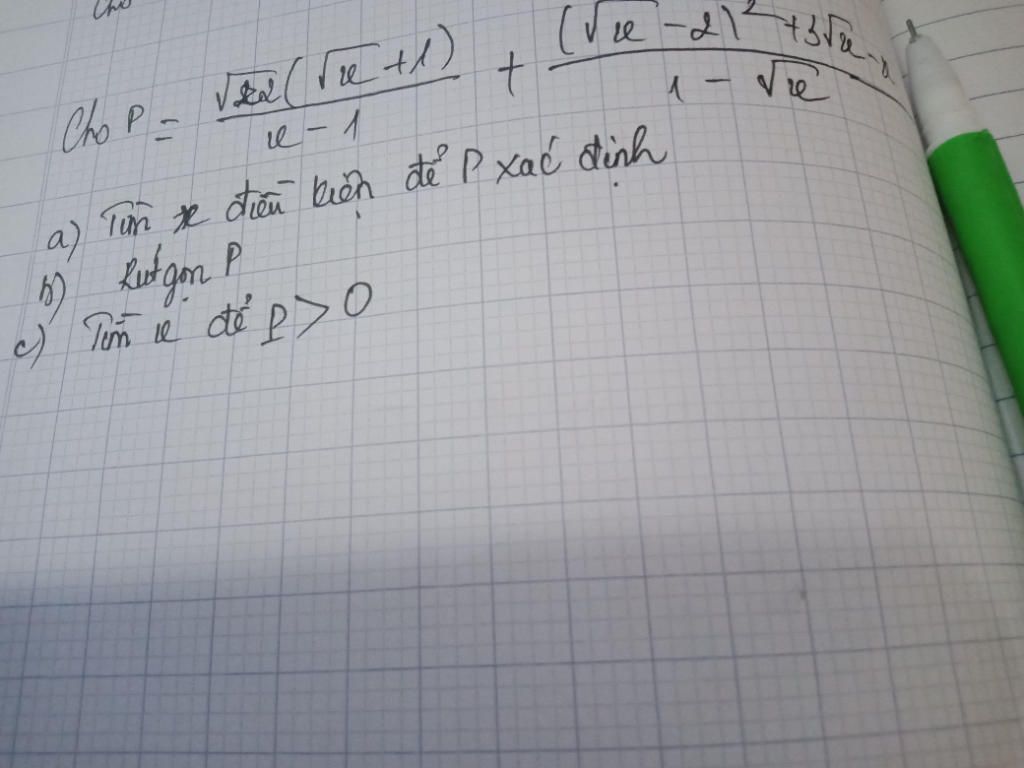 Cho
Cho P = √x(√x + 1) / x - 1 + (√x - 2)² + 3√x - x / 1 - √x
a) Tìm x điều kiện để P xác định
b) Rút gọn P
c) Tìm x để P > 0